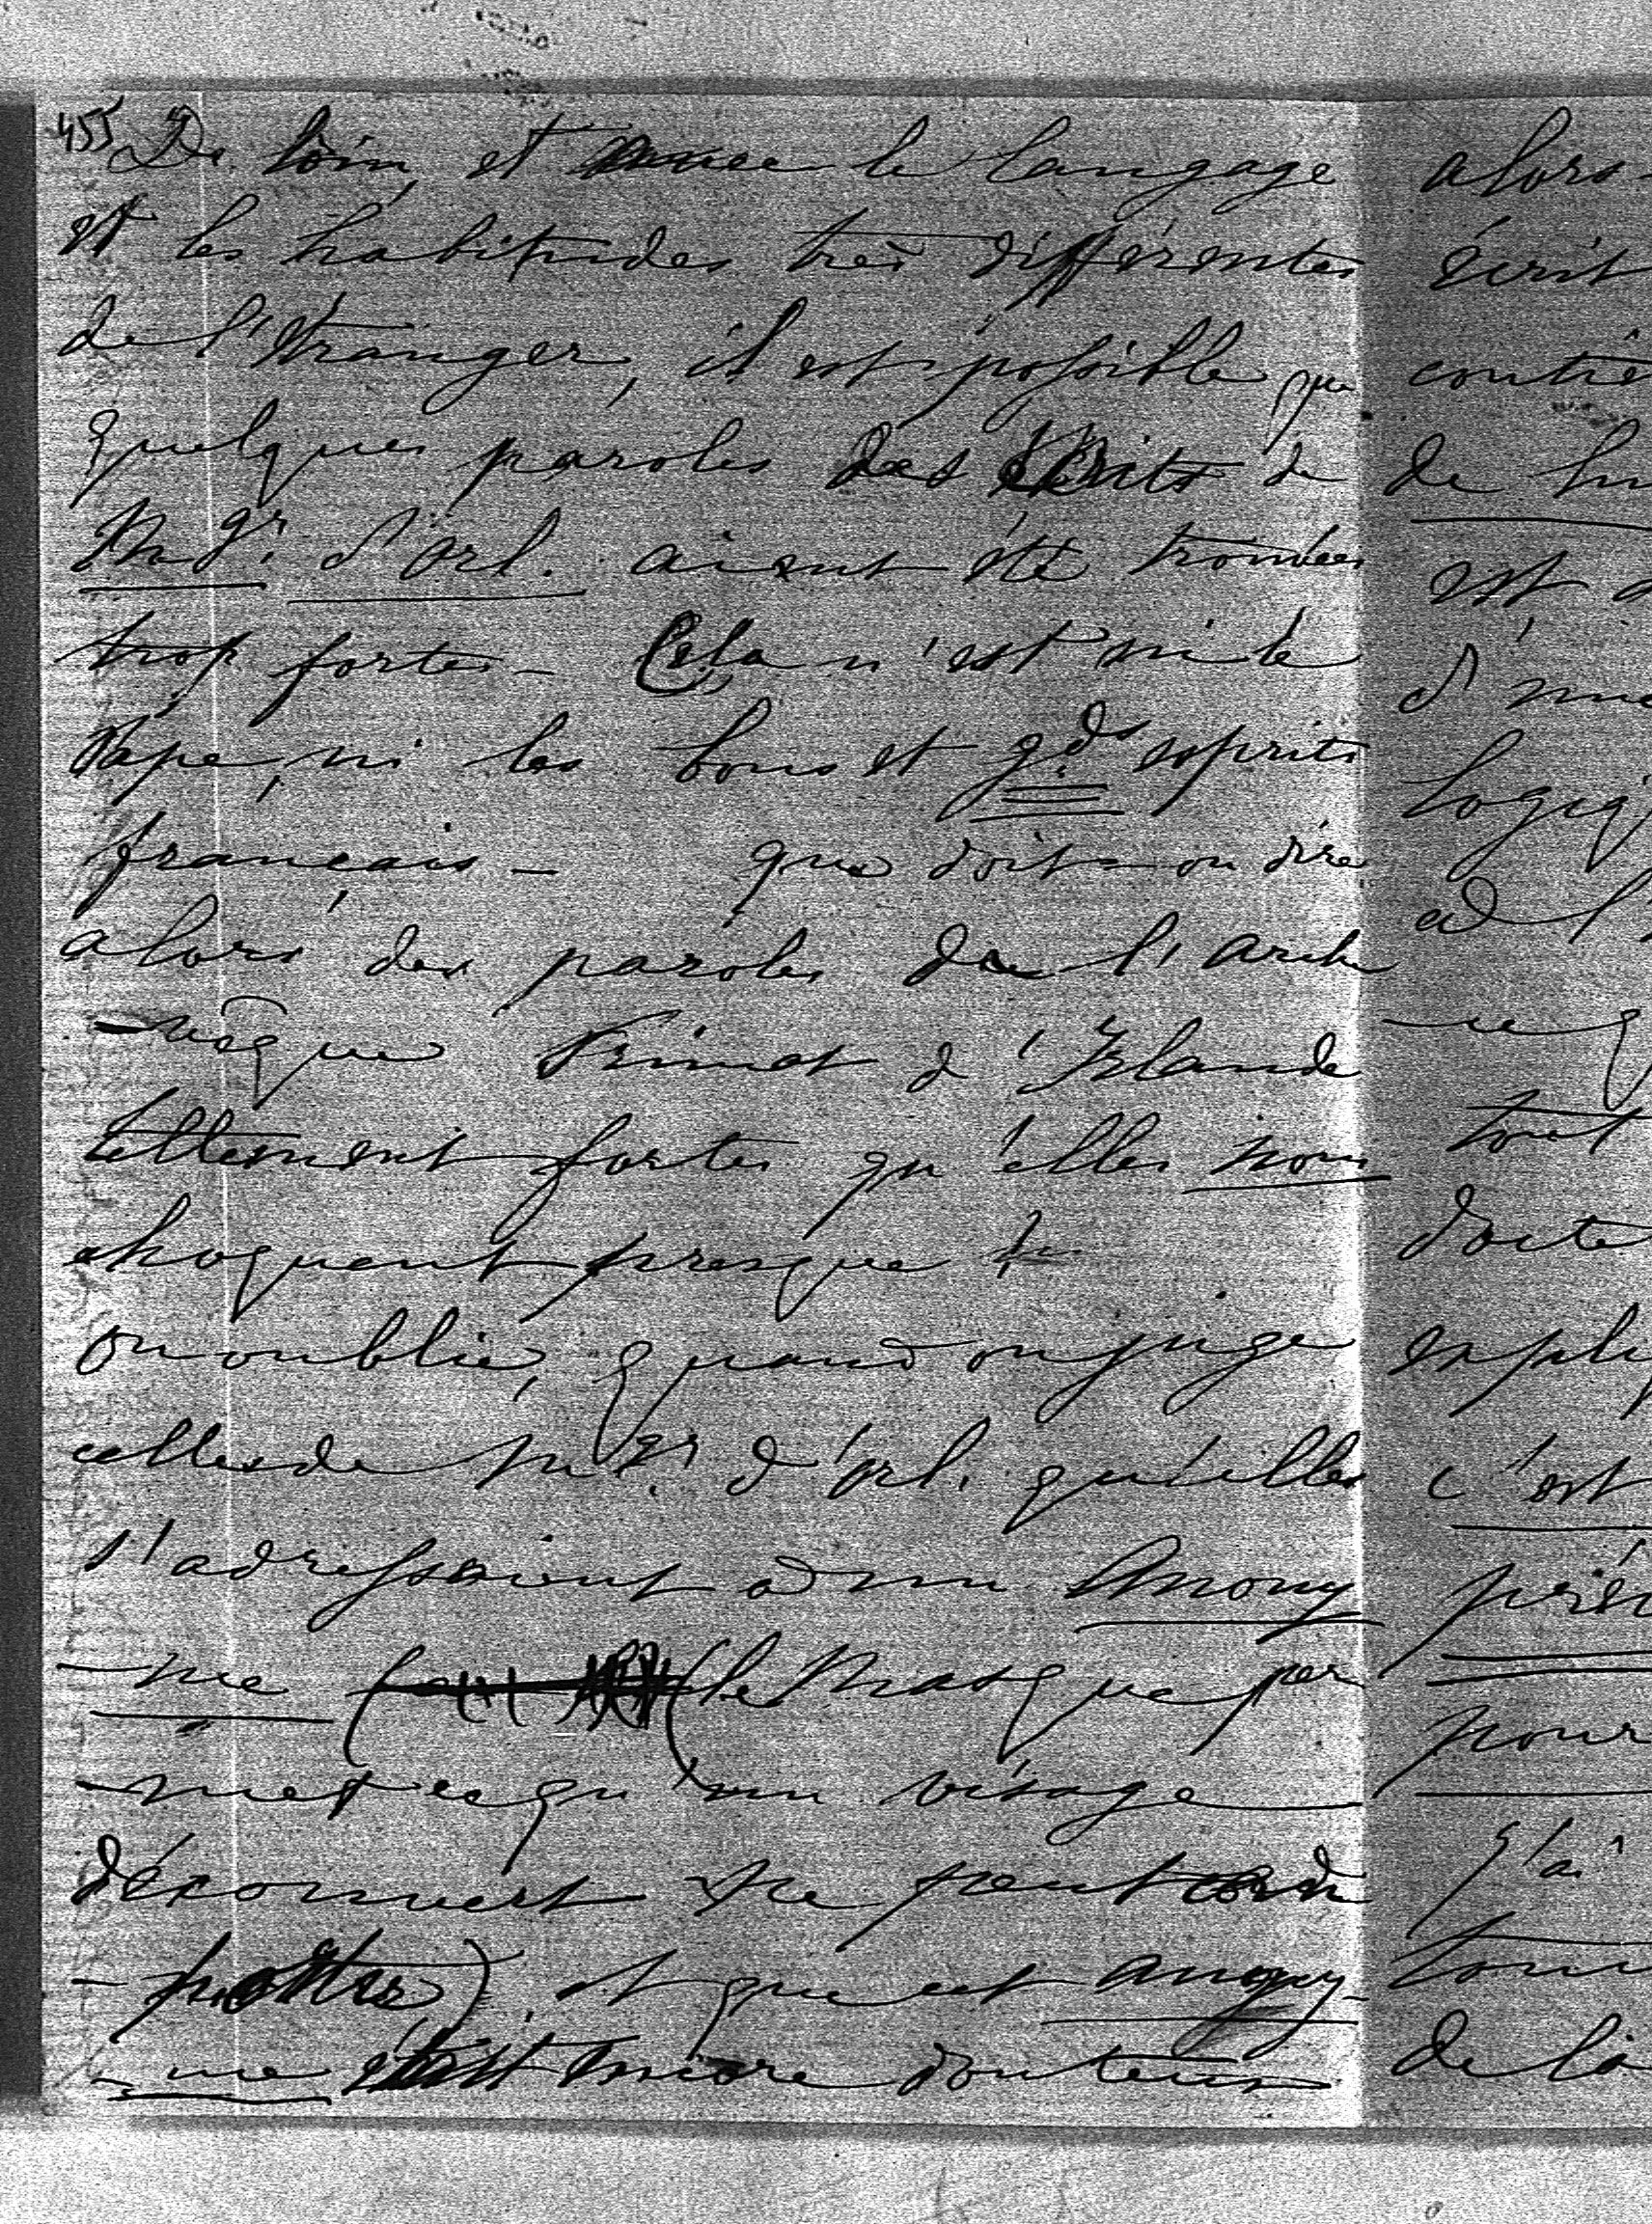 455 De loin, et avec le langage
et les habitudes très différentes
de l'étranger, il est possible que
quelques paroles des écrits de
Mgr. d'Orl. aient été trouvées
trop fortes – Cela n'est ni le
Pape, ni les bons et gds esprits
français – que doit-on dire
alors des paroles de l'arche
-vêque Primat d'Irlande
tellement fortes qu'elles nous
choquent presque
on oublie, quand on juge
celles de Mgr. d'Orl. qu'elles
s'adressaient à un Anony
-me (le Masque per
-met ce qu'un visage
découvert ne peut
-porter), et que cet anony-
-me était more douteux
alors
écrit
de
est
d'
à
tout
c'est
pour
j'ai
de la